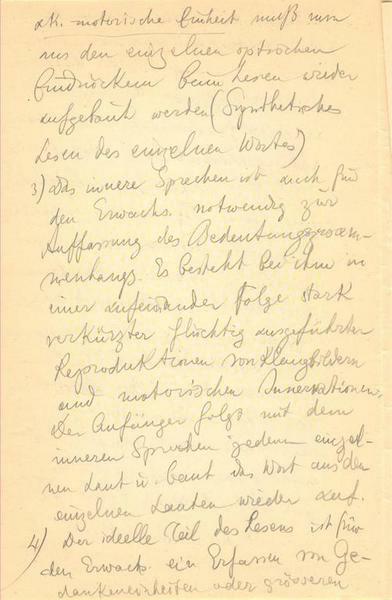 ak.-motorische Einheit muß nun
aus den einzelnen optischen
Eindrücken beim Lesen wieder
aufgebaut werden (Synthetisches
Lesen des einzelnen Wortes)
3) Das innere Sprechen ist auch für
den Erwachs. notwendig zur
Auffassung des Bedeutungszusam-
menhangs. Es besteht bei ihm in
einer aufeinander Folge stark
verkürzter flüchtig ausgeführter
Reproduktionen von Klangbildern
und motorischen Innervationen.
Der Anfänger folgt mit dem
inneren Sprechen jedem einzel-
nen Laut u. baut das Wort aus den
einzelnen Lauten wieder auf.
4) Der ideelle Teil des Lesens ist für
den Erwachs. ein Erfassen von Ge-
dankeneinheiten oder grösseren